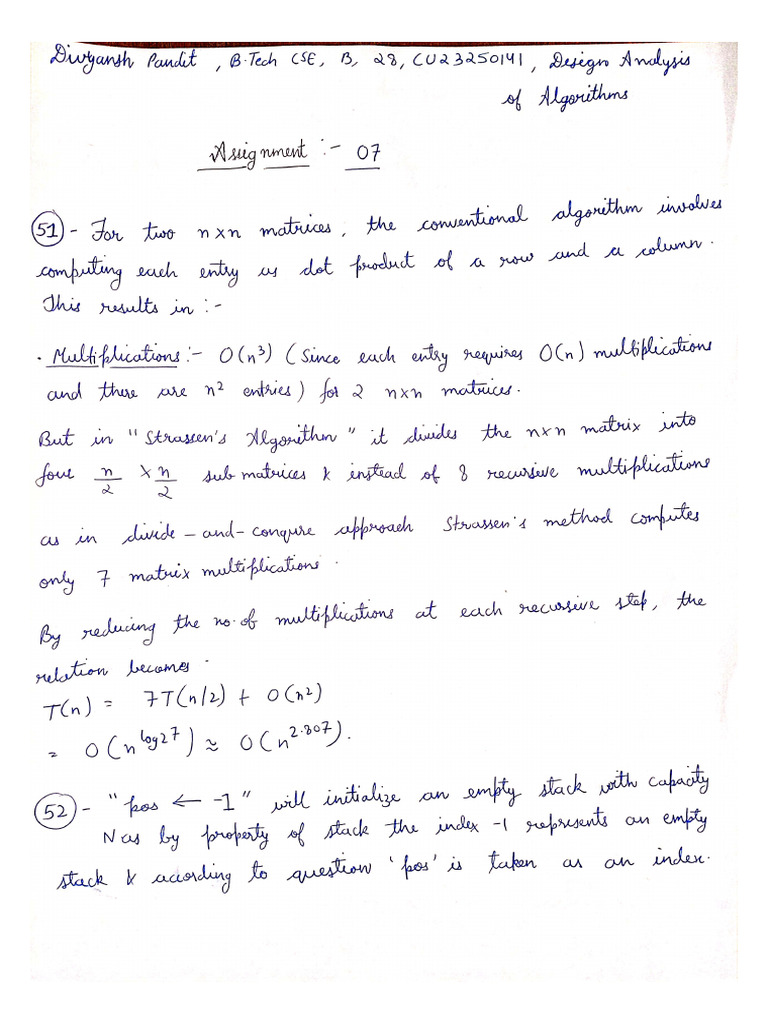 Divyansh Pandit , B.Tech CSE, B, 28, CU23250141 , Design Analysis
of Algorithms
Assignment :- 07
51 - For two n×n matrices, the conventional algorithm involves
computing each entry as dot product of a row and a column.
This results in :-
· Multiplications :- O(n³) (Since each entry requires O(n) multiplications
and there are n² entries) for 2 n×n matrices.
But in "Strassen's Algorithm" it divides the n×n matrix into
four n/2 × n/2 sub matrices & instead of 8 recursive multiplications
as in divide-and-conqure approach Strassen's method computes
only 7 matrix multiplications.
By reducing the no. of multiplications at each recursive step, the
relation becomes.
T(n) = 7T(n/2) + O(n²)
= O(n^log27) ≈ O(n^2.807).
52 - "pos ← -1" will initialize an empty stack with capacity
N as by property of stack the index -1 represents an empty
stack & according to question 'pos' is taken as an index.